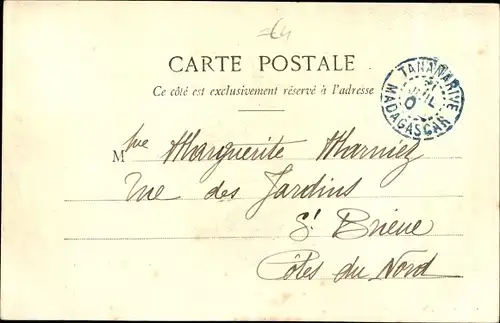 CARTE POSTALE
Ce côté est exclusivement réservé à l'adresse
TANANARIVE
JUIL
0
MADAGASCAR
Mlle Marguerite Marniez
Rue des Jardins
St Brieuc
Côtes du Nord